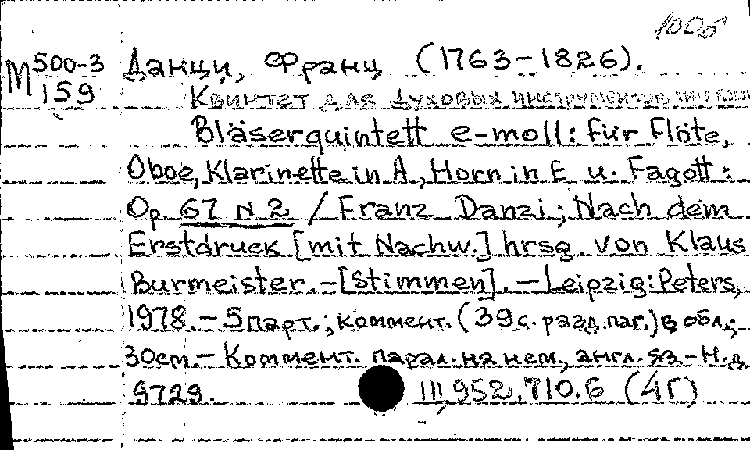 100б
М 500-3 Данци, Франц (1763-1826).
159
Квинтет для духовых инструментов
Bläserquintett e-moll: für Flöte,
Oboe, Klarinette in A, Horn in E u. Fagott:
Op. 67 N 2 / Franz Danzi; Nach dem
Erstdruck [mit Nachw.] hrsg. von Klaus
Burmeister.-[Stimmen].-Leipzig: Peters,
1978.-5 парт.; коммент. (39 с. разд. паг.) в обл.;
30cm.-Коммент. парал. на нем., англ. яз.-Н.д.
9729.
III, 952, 710.6 (4Г)